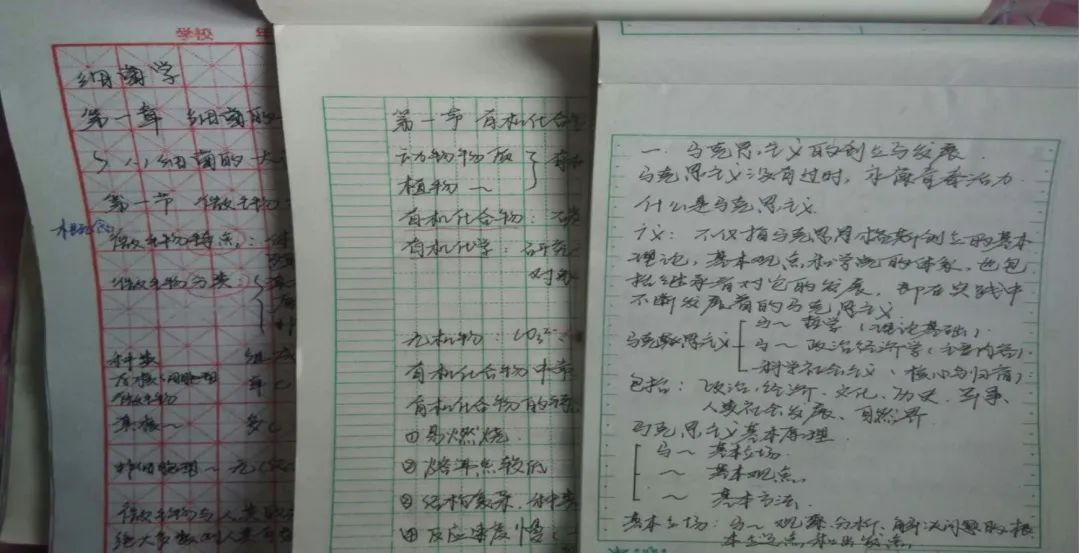 学校 年
细菌学
第一章 细菌的
§ (1) 细菌的大
第一节 微生物
概念
微生物特点:
微生物分类:
种类 组成
原核细胞型 单
微生物
真核~ 多
非细胞型~ 无
微生物与人类的
绝大多数对人类
第一节 有机化合
动物物质
植物~
有机化合物:
有机化学:研究
对象
无机物:
有机化合物中
有机化合物的特
①易燃烧
②熔沸点较低
③结构复杂,种类
④反应速度慢:
一、马克思主义的创立与发展
马克思主义没有过时,永葆青春活力
什么是马克思主义
广义:不仅指马克思恩格斯创立的基本
理论,基本观点和学说的体系,也包
括继承者对它的发展,即在实践中
不断发展着的马克思主义
马~哲学(理论基础)
马克思主义 马~政治经济学(主要内容)
科学社会主义(核心与归宿)
包括:政治,经济,文化、历史、军事、
人类社会发展、自然界
马克思主义基本原理
马~基本立场
~基本观点
~基本方法
基本立场:马~观察、分析、解决问题的根
本立足点和出发点